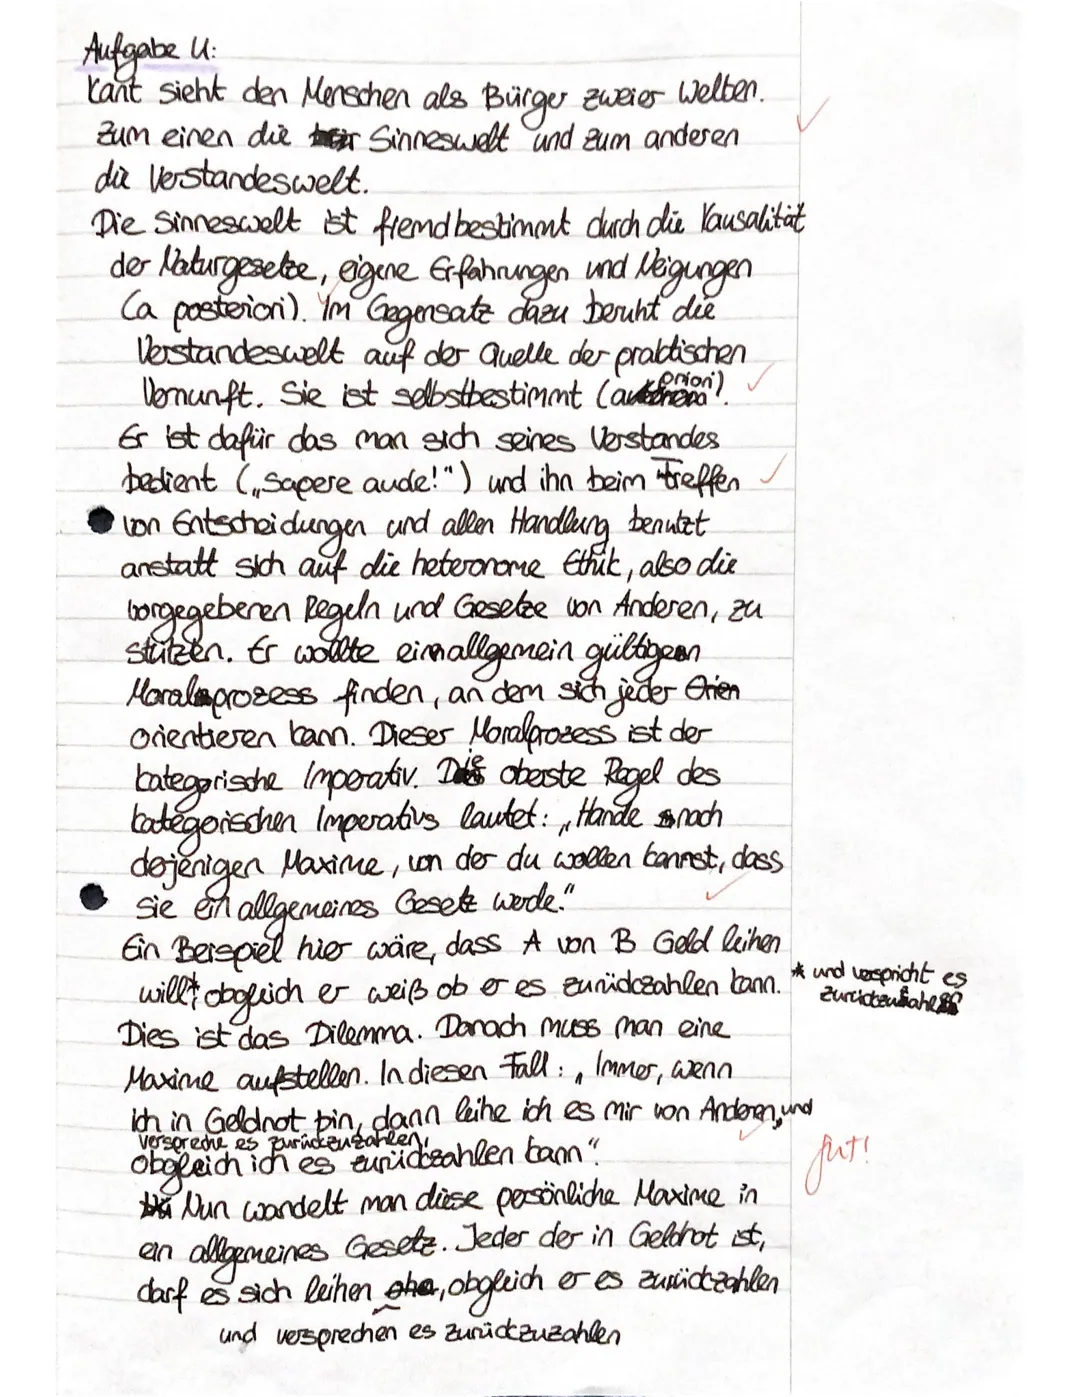 Aufgabe 4:
Kant sieht den Menschen als Bürger zweier Welten.
Zum einen die Sinneswelt und zum anderen
die Verstandeswelt.
Die Sinneswelt ist fremdbestimmt durch die Kausalität
der Naturgesetze, eigene Erfahrungen und Neigungen
(a posteriori). Im Gegensatz dazu beruht die
Verstandeswelt auf der Quelle der praktischen
Vernunft. Sie ist selbstbestimmt (a priori).
Er ist dafür das man sich seines Verstandes
bedient („Sapere aude!") und ihn beim Treffen
von Entscheidungen und allen Handlung benutzt
anstatt sich auf die heteronome Ethik, also die
vorgegebenen Regeln und Gesetze von Anderen, zu
stützen. Er wollte ein allgemein gültigen
Moralprozess finden, an dem sich jeder Orien
orientieren kann. Dieser Moralprozess ist der
kategorische Imperativ. Die oberste Regel des
kategorischen Imperativs lautet: „Hande nach
derjenigen Maxime, von der du wollen kannst, dass
sie ein allgemeines Gesetz werde."
Ein Beispiel hier wäre, dass A von B Geld leihen
will* obgleich er weiß ob er es zurückzahlen kann.
* und verspricht es
zurückzuzahlen
Dies ist das Dilemma. Danach muss man eine
Maxime aufstellen. In diesen Fall: „Immer, wenn
ich in Geldnot bin, dann leihe ich es mir von Anderen, und
verspreche es zurückzuzahlen,
obgleich ich es zurückzahlen kann".
gut!
Nun wandelt man diese persönliche Maxime in
ein allgemeines Gesetz. Jeder der in Geldnot ist,
darf es sich leihen, obgleich er es zurückzahlen
und versprechen es zurückzuzahlen